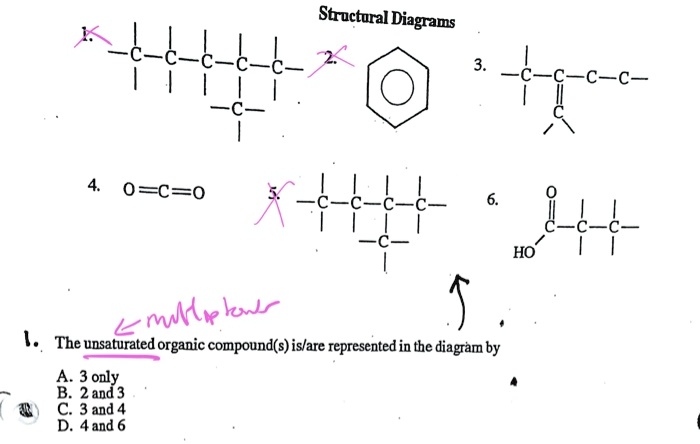 Structural Diagrams
1. –C–C–C–C–C–
–C–
2.
3. –C–C–C–C–
C
4. O=C=O
5. –C–C–C–C–
–C–
6. O
C–C–C–
HO
← multiple bonds
1. The unsaturated organic compound(s) is/are represented in the diagram by
A. 3 only
B. 2 and 3
C. 3 and 4
D. 4 and 6